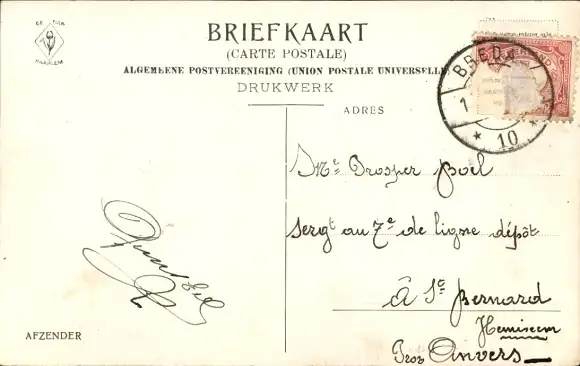 DE TULP
HAARLEM
BRIEFKAART
(CARTE POSTALE)
ALGEMEENE POSTVEREENIGING (UNION POSTALE UNIVERSELLE)
DRUKWERK
BREDA
1
* 10 *
ADRES
Mr Prosper Poel
Sergt au 7e de ligne dépôt
à St Bernard
Hemixem
Prov Anvers
AFZENDER